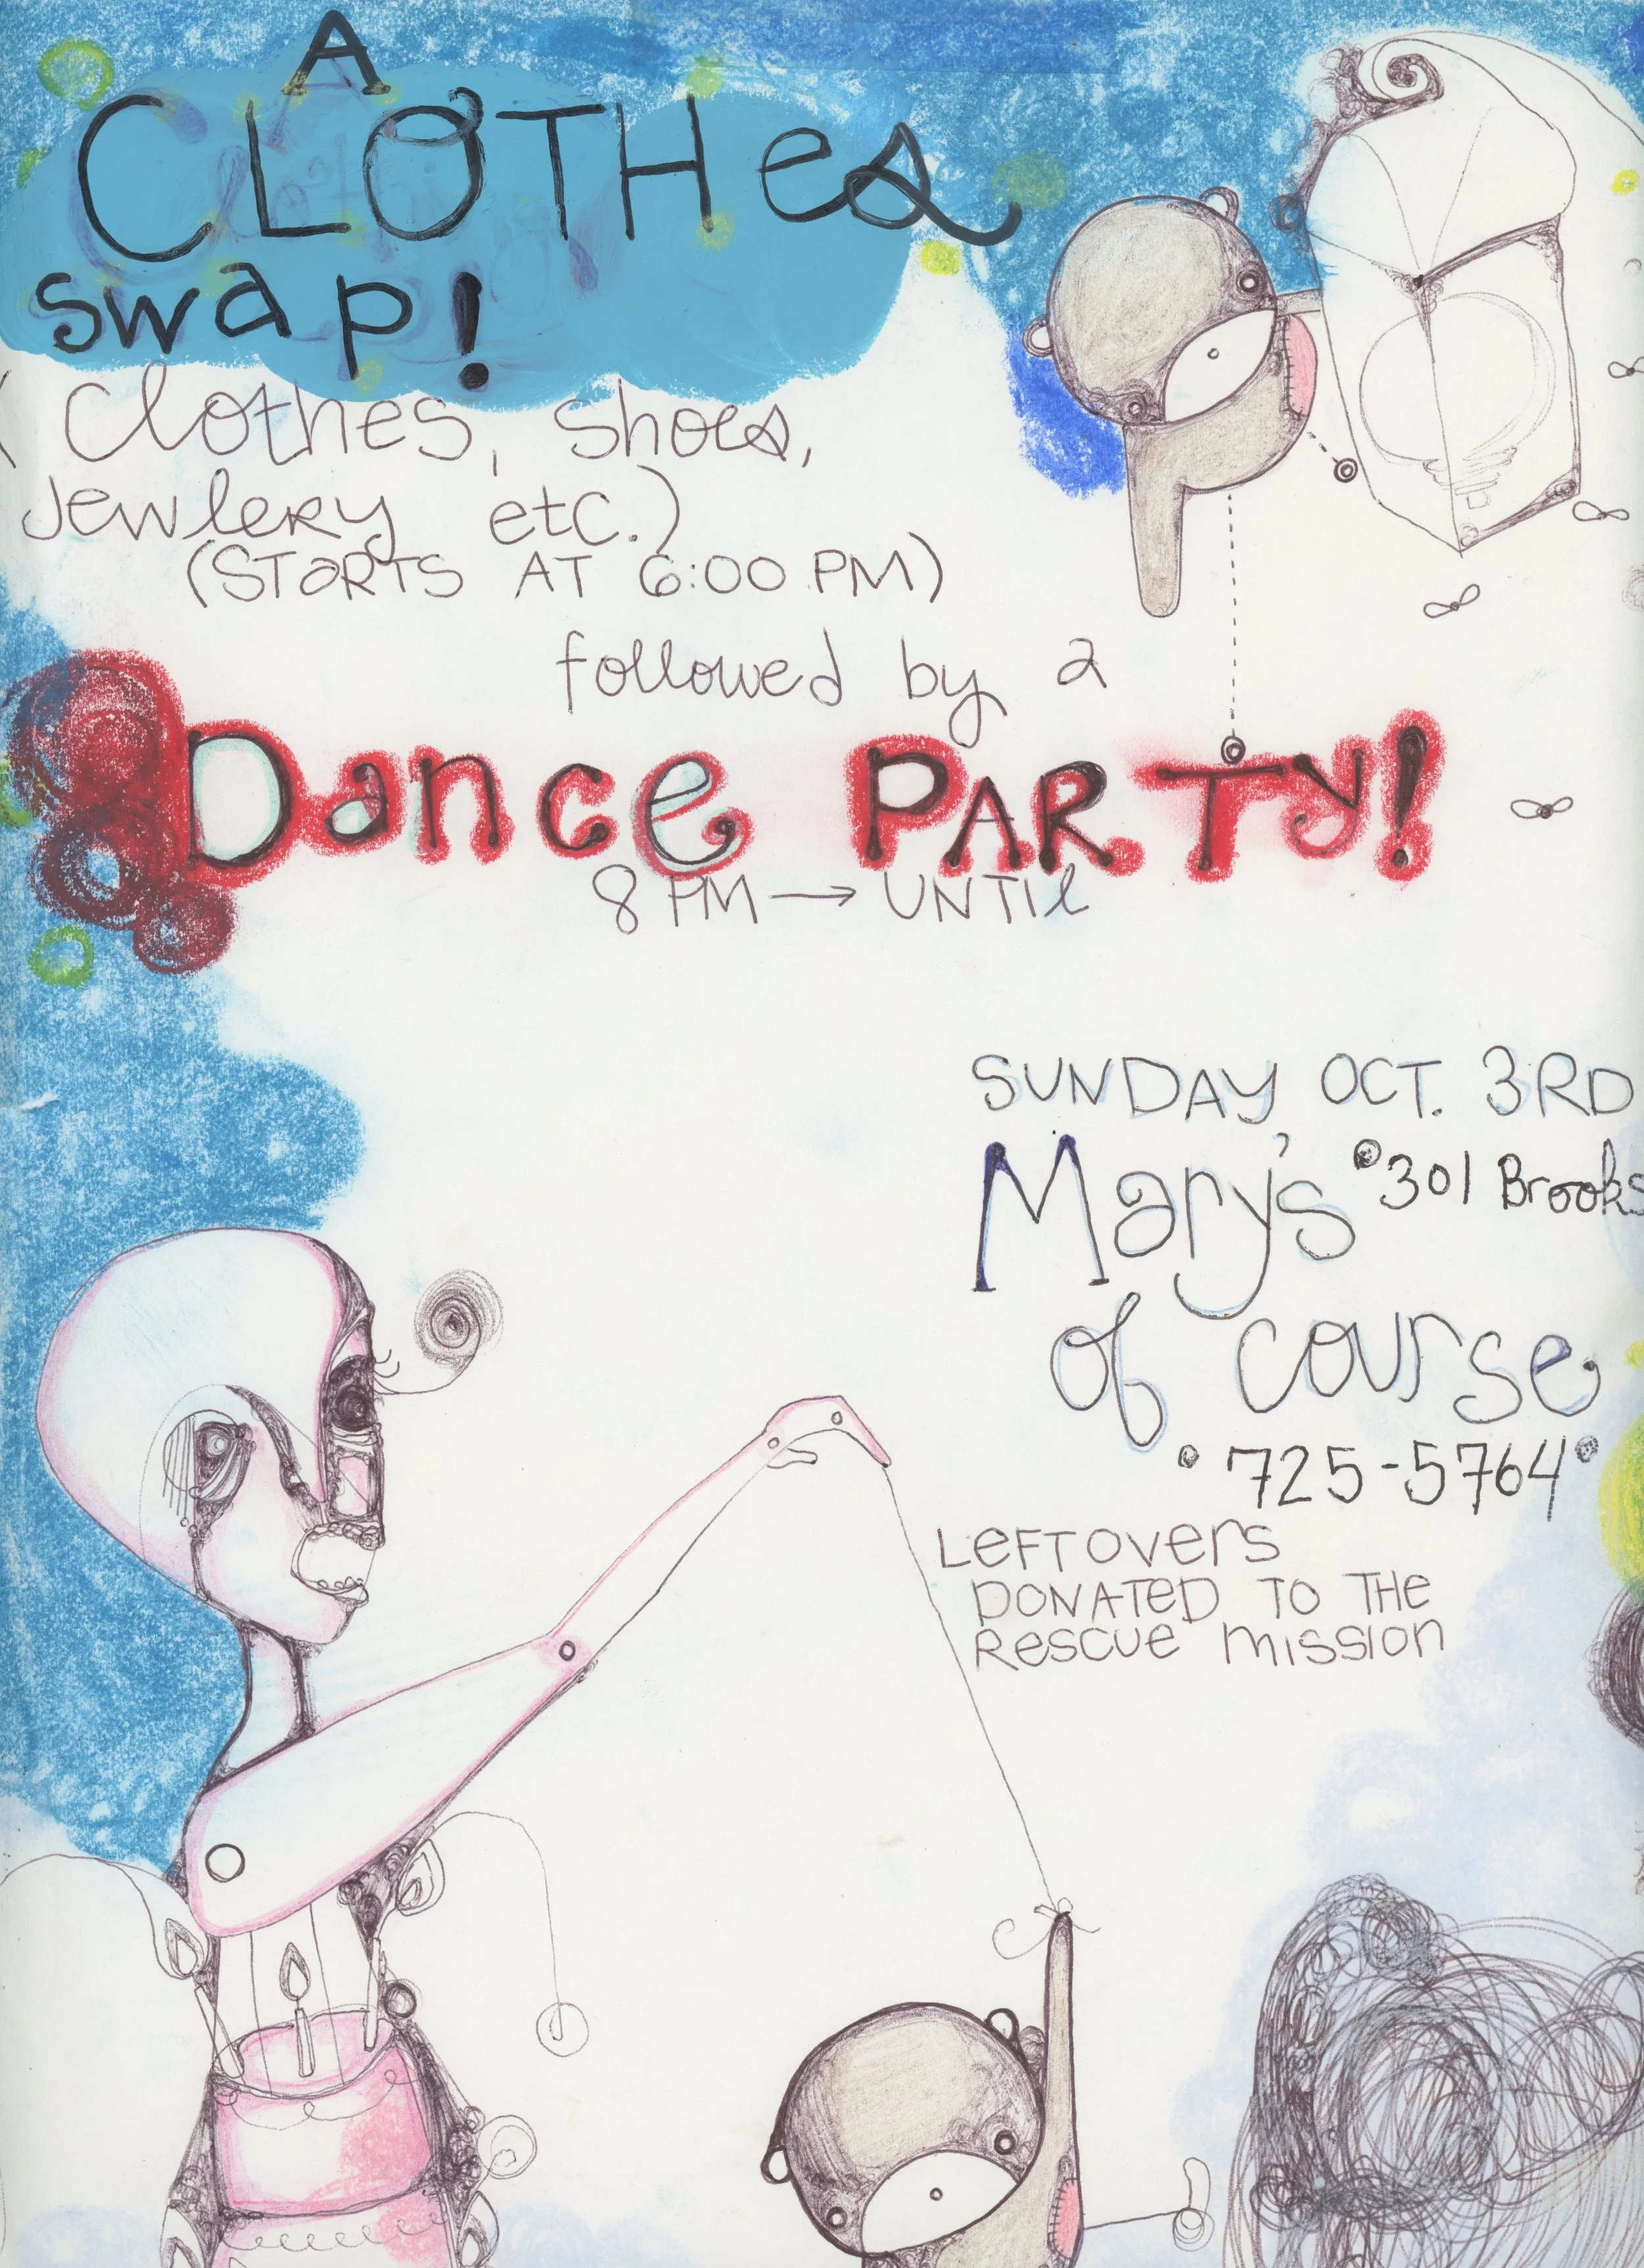 A
CLOTHes
swap!
(Clothes, shoes,
Jewlery etc.)
(STaRTS AT 6:00 PM)
followed by a
Dance PARTY!
8 PM → UNTIl
SUNDAY OCT. 3RD
Mary's •301 Brooks
of course
• 725-5764 •
LeFTovers
DONATED TO THE
Rescue mission